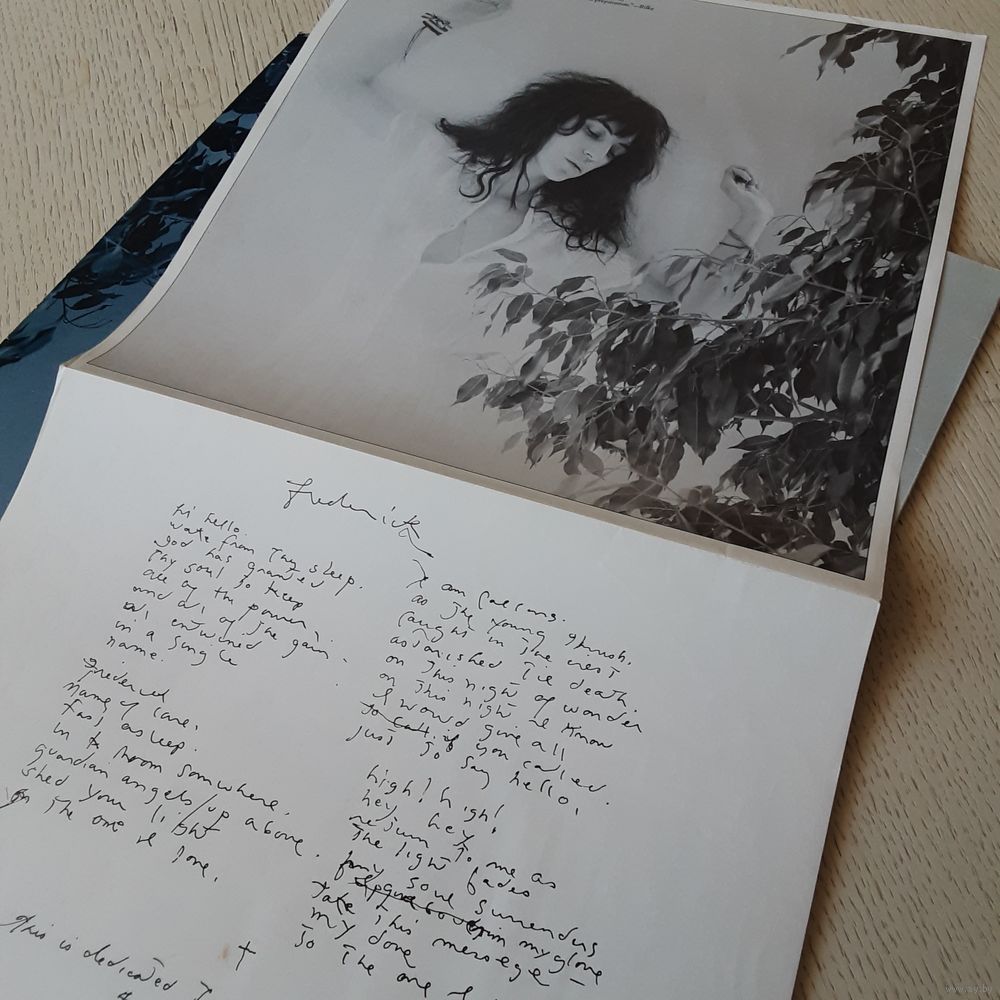 —Rilke
frederick
hi hello.
wake from thy sleep.
god has granted
thy soul to keep
all of the power
and all of the gain.
all entwined
in a single
name.
frederick
name of care.
fast asleep.
in a room somwhere.
guardian angels/up above.
shed your light
on the one I love.
this is dedicated
I am
as the young thrush.
caught in the
astonished
on this night of wonder
on this night we know
I would give all
if you called.
just to say hello.
high! high!
hey hey
return to me as
the light fades
my soul surrenders
my glove
take this message
my dove
to the one I
www.ay.by